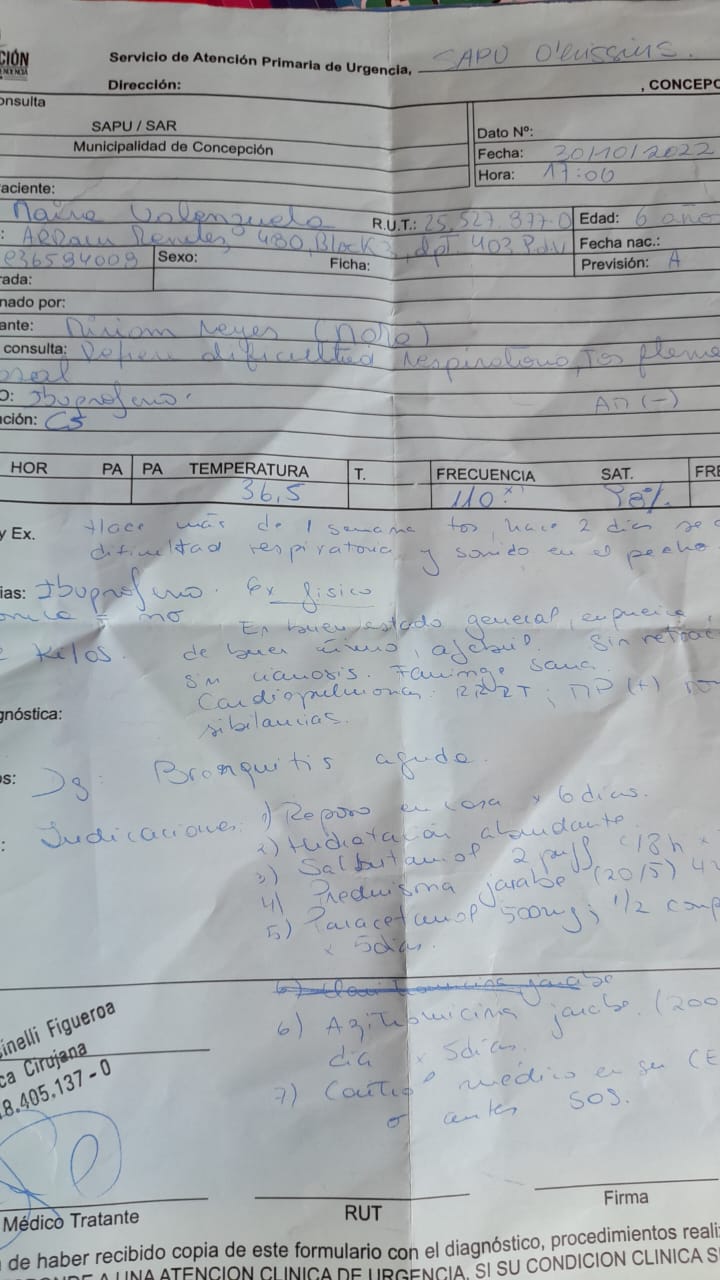 CIÓN
Servicio de Atención Primaria de Urgencia, SAPU O'Higgins.
Dirección: , CONCEPC
onsulta
SAPU / SAR
Municipalidad de Concepción
Dato Nº:
Fecha: 30/10/2022
Hora: 17:00
aciente:
Valenzuela R.U.T.: Edad: 6 año
480, Block dpt. 403 Fecha nac.:
Sexo: Ficha: Previsión: A
rada:
nado por:
ante: Miriam Reyes
consulta: Refiere dificultad respiratoria, Tos flema
O: Ibuprofeno. AM (-)
ción:
HOR PA PA TEMPERATURA T. FRECUENCIA SAT. FRE
36,5 110 x' 98%
y Ex. Hace más de 1 semana tos, hace 2 días se a
dificultad respiratoria y sonido en el pecho.
ias: Ibuprofeno. Ex físico
no En buen estado general,
Kilos de buen ánimo, afebril. Sin retrac
sin cianosis. Faringe sana.
Cardiopulmonar: RR2T; MP (+)
sibilancias.
gnóstica:
s: Dg: Bronquitis aguda.
: Indicaciones: 1) Reposo en casa x 6 días.
2) Hidratación abundante.
3) Salbutamol 2 puff c/8h x
4) jarabe (20/5)
5) Paracetamol 500mg; 1/2 comp
x 5 días.
jarabe
6) Azitromicina jarabe. (200
día x 5 días.
7) Control médico en su CE
o antes SOS.
inelli Figueroa
ca Cirujana
8.405.137-0
Médico Tratante RUT Firma
de haber recibido copia de este formulario con el diagnóstico, procedimientos reali
A UNA ATENCION CLINICA DE URGENCIA, SI SU CONDICION CLINICA S